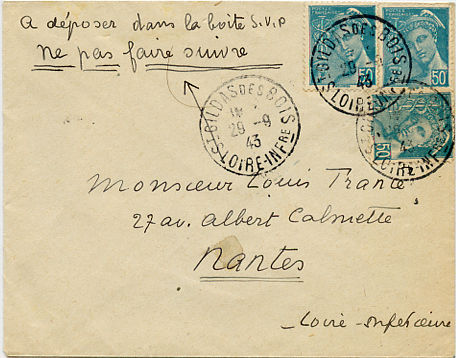 A déposer dans la boîte S.V.P
ne pas faire suivre
50
50
ST GILDAS DES BOIS
29 -9
43
LOIRE-INFRE
ST GILDAS DES BOIS
29 -9
43
LOIRE-INFRE
50
43
LOIRE-INFRE
Monsieur Louis
27 av. Albert Calmette
Nantes
Loire-Inférieure